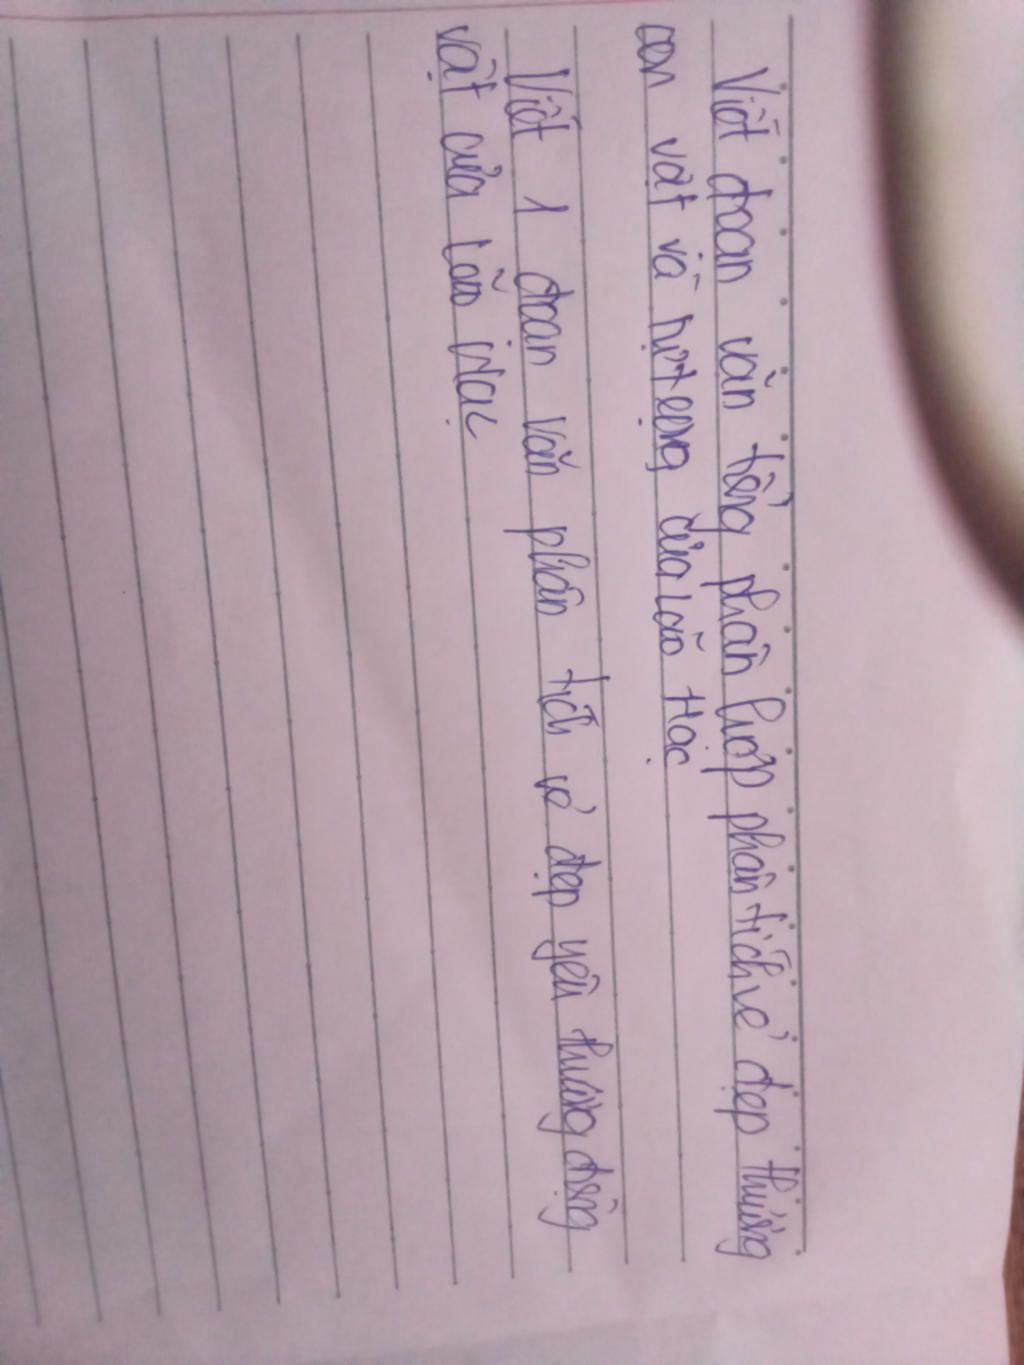 Viết đoạn văn tổng phân hợp phân tích vẻ đẹp thương
con vật và tự trọng của Lão Hạc
Viết 1 đoạn văn phân tích vẻ đẹp yêu thương động
vật của Lão Hạc